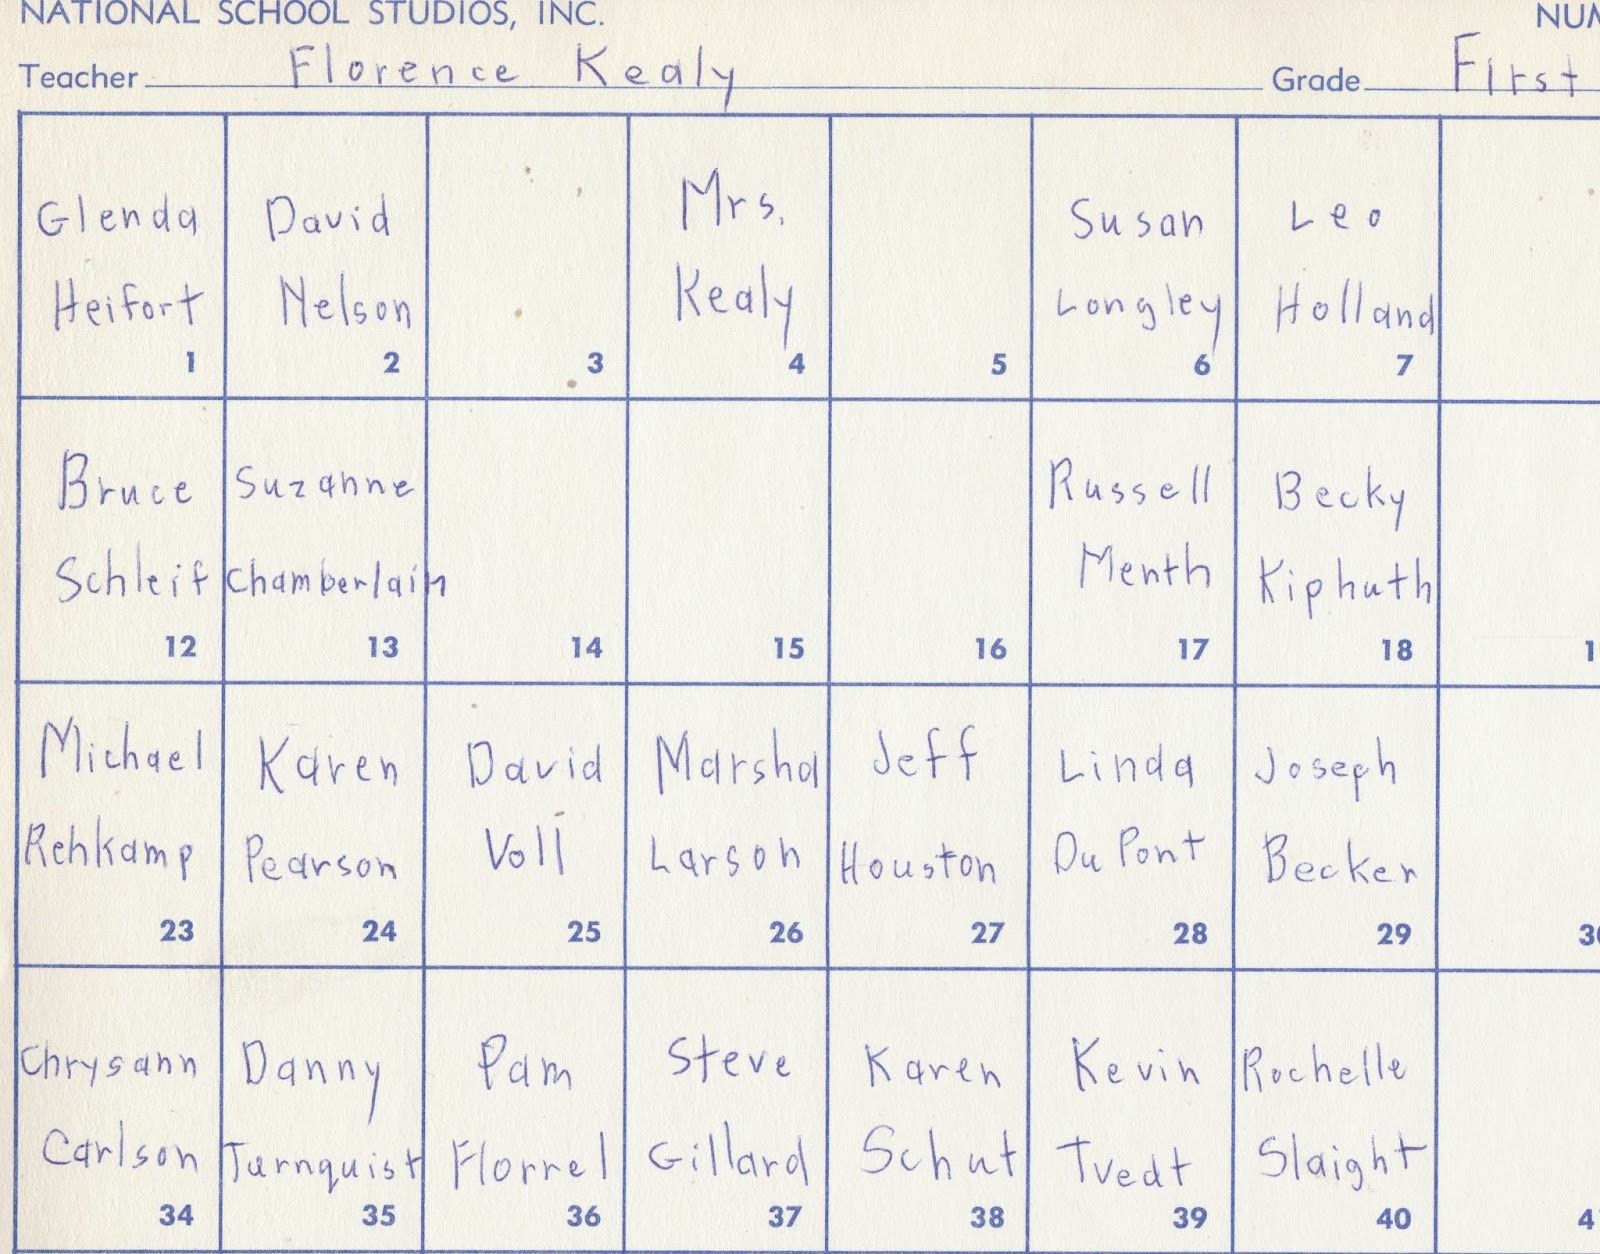 NATIONAL SCHOOL STUDIOS, INC. NUM
Teacher Florence Kealy Grade First
Glenda Heifort 1
David Nelson 2
3
Mrs. Kealy 4
5
Susan Longley 6
Leo Holland 7
Bruce Schleif 12
Suzanne Chamberlain 13
14
15
16
Russell Menth 17
Becky Kiphuth 18
1
Michael Rehkamp 23
Karen Pearson 24
David Voll 25
Marsha Larson 26
Jeff Houston 27
Linda DuPont 28
Joseph Becker 29
30
Chrysann Carlson 34
Danny Turnquist 35
Pam Florrel 36
Steve Gillard 37
Karen Schut 38
Kevin Tvedt 39
Rochelle Slaight 40
4